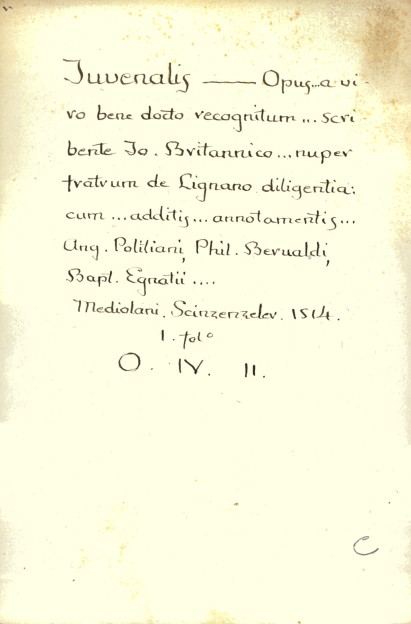 Juvenalis —— Opus...a vi-
ro bene docto recognitum ... scri-
bente Jo. Britannico ... nuper
fratrum de Lignano diligentia:
cum ... additis ... annotamentis ...
Ang. Politiani, Phil. Beroaldi,
Bapt. Egnatii ....
Mediolani. Scinzenzeler. 1514.
1. fol°
O. IV. 11.
C